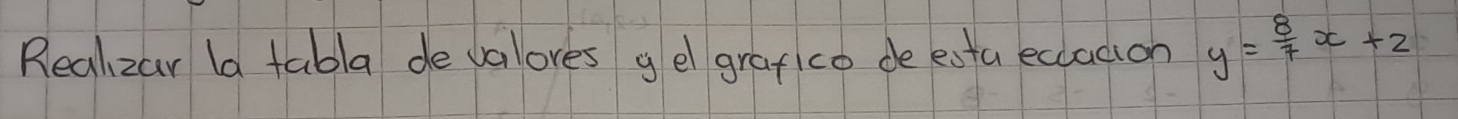 Realizar la tabla de valores y el grafico de esta ecuacion y = 8/7 x + 2